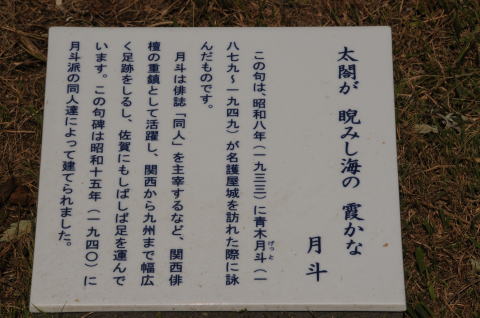 太閤が 睨みし海の 霞かな
月斗
この句は、昭和八年（一九三三）に青木月斗（一
げっと
八七九～一九四九）が名護屋城を訪れた際に詠
んだものです。
月斗は俳誌「同人」を主宰するなど、関西俳
檀の重鎮として活躍し、関西から九州まで幅広
く足跡をしるし、佐賀にもしばしば足を運んで
います。この句碑は昭和十五年（一九四〇）に
月斗派の同人達によって建てられました。